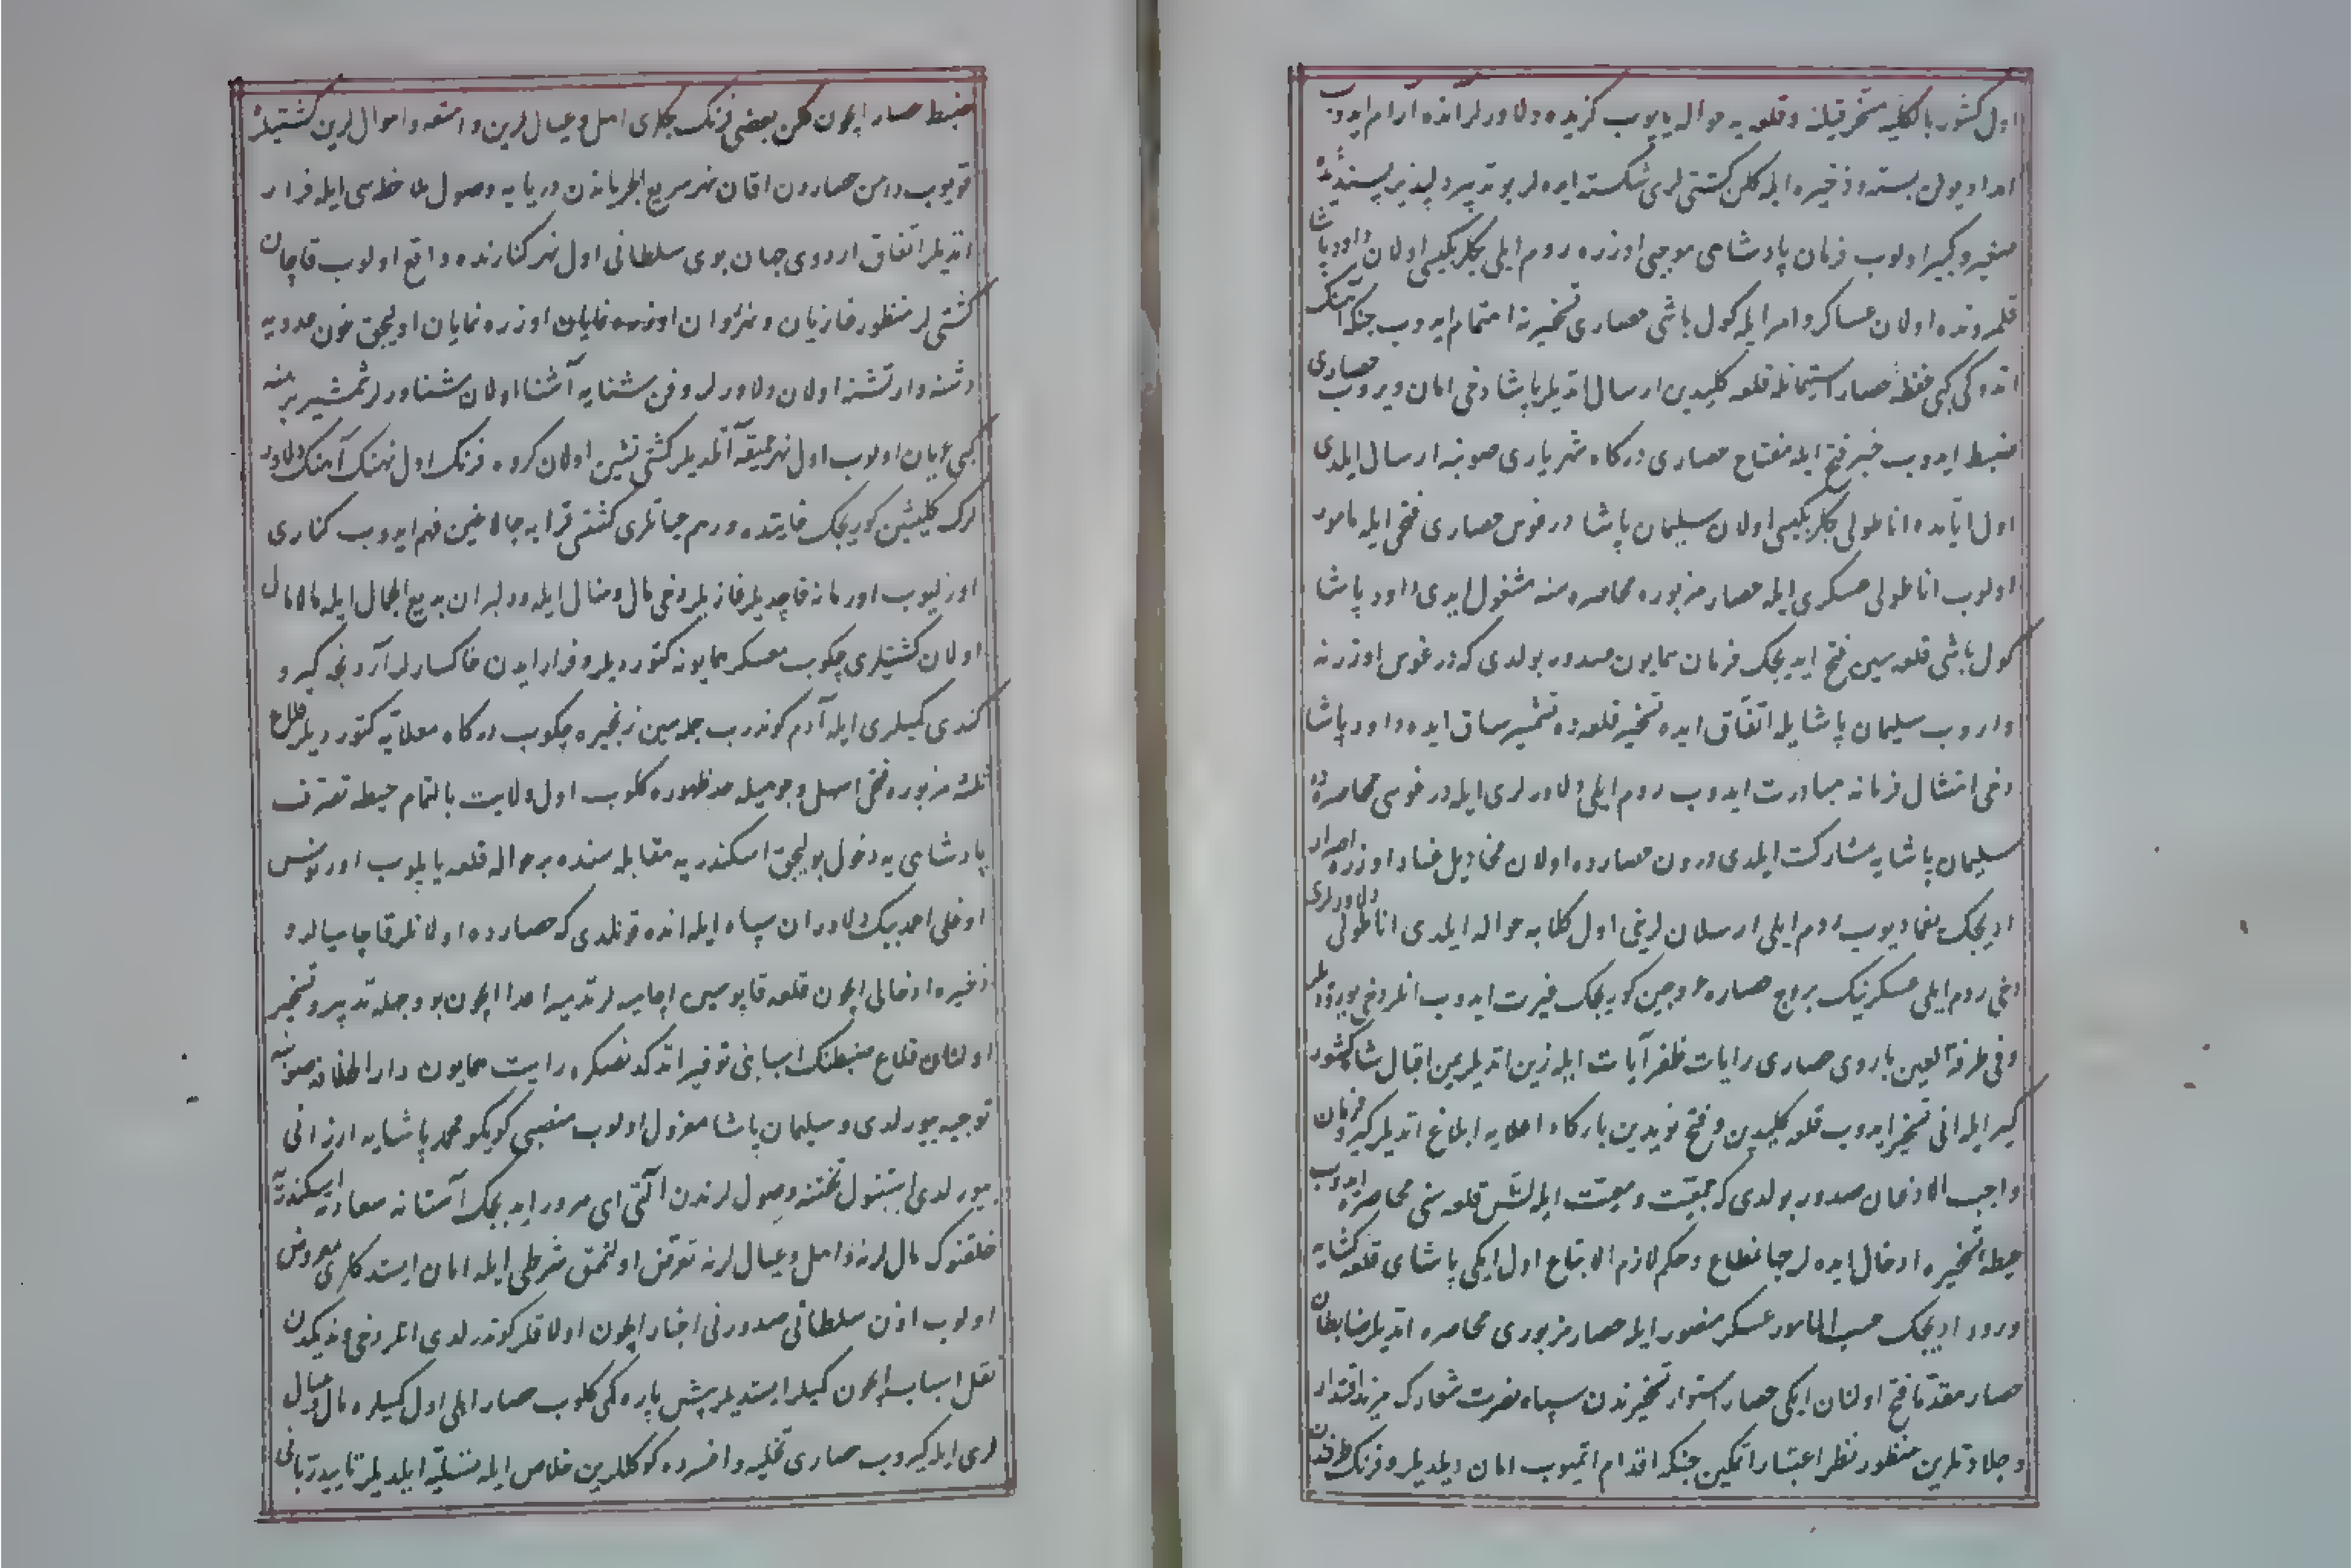 اول كشور بالكليه مسخر قيلنه و قلعه يه حواله ياپوب كزيده دلاورلر آنده آرام ايدوب
امداد يولن بسته و ذخيره ايله كلن كشتى لرى شكسته ايده لر بو تدبير دلپذير پسنديدۀ
صغير و كبير اولوب فرمان پادشاهى موجبى اوزره روم ايلى بكلربكيسى اولان داود پاشا
قلمرونده اولان عساكر و امرا ايله كول باشى حصارى تسخيرنه اهتمام ايدوب جنكه آهنك
اتدوكى كبى حفظۀ حصار استيمانله قلعه كليدين ارسال اتديلر پاشا دخى امان ويروب حصارى
ضبط ايدوب خبر فتح ايله مفتاح حصارى دركاه شهريارى صوبنه ارسال ايلدى
اول ايامده اناطولى بكلربكيسى اولان سليمان پاشا درغوس حصارى فتحى ايله مامور
اولوب اناطولى عسكرى ايله حصار مزبوره محاصره سنه مشغول ايدى داود پاشا
كول باشى قلعه سين فتح ايديجك فرمان همايون صدور بولدى كه درغوس اوزرنه
واروب سليمان پاشايله اتفاق ايده تسخير قلعه ده تشمير ساق ايده داود پاشا
دخى امتثال فرمانه مبادرت ايدوب روم ايلى دلاورلرى ايله درغوسى محاصره ده
سليمان پاشايه مشاركت ايلدى درون حصارده اولان مخاذيل عناد اوزره اصرار
اديجك يغما ديوب روم ايلى ارسلان لرينى اول كلابه حواله ايلدى اناطولى دلاورلرى
دخى روم ايلى عسكرينك بروج حصاره عروجين كوريجك غيرت ايدوب انلر دخى يوريديلر
و فى طرفة العين باروى حصارى رايات ظفر آيات ايله زين اتديلر يمن اقبال شاه كشور
كير ايله انى تسخير ايدوب قلعه كليدين و فتح نويدين باركاه اعلايه ابلاغ اتديلر كيرو فرمان
واجب الاذعان صدور بولدى كه جمعيت و معيت ايله لش قلعه سنى محاصره ايدوب
حيطۀ تسخيره ادخال ايده لر چبا نطاع و حكم لازم الاتباع اول ايكى پاشاى قلعه كشايه
ورود اديجك حسب المامور عسكر منصور ايله حصار مزبورى محاصره اتديلر ضابطان
حصار مقدما فتح اولنان ايكى حصار استوار تسخيرندن سپاه نصرت شعارك مزيد اقتدار
و جلادتلرين منظور نظر اعتبار اتمكين جنكه اقدام اتميوب امان ديلديلر و فرنك طرفندن
ضبط حصار ايچون كلن بعضى فرنك بكلرى اهل و عيال لرين و امتعه و اموال لرين كشتيلره
قويوب دامن حصاردن اقان نهر سريع الجرياندن دريايه وصول ملاحظه سى ايله فرار
اتديلر اتفاق اردوى جهان پوى سلطانى اول نهر كنارنده واقع اولوب قاچان
كشتى لر منظور غازيان و نهر روان اوزره نمايان اوليجق خون عدويه
دشنه وار تشنه اولان دلاورلر و فن شنايه آشنا اولان شناورلر شمشير برهنه
كبى عريان اولوب اول نهر عميقه آتلديلر كشتى نشين اولان كروه فرنك اول نهنك آهنك دلاور
لرك كلشين كوريجك غايتده ورهم حياتلرى كشتى قرايه چالاخين فهم ايدوب كنارى
اوزليوب اورمانه قاچديلر غازيلر دخى مال و منال ايله و دلبران بديع الجمال ايله مالامال
اولان كشتيلرى چكوب معسكر همايونه كتورديلر و فرار ايدن خاكسارلر آردنجه كيرو
كندى كميلرى ايله آدم كوندرب جمله سين زنجيره چكوب دركاه معلايه كتورديلر قلاع
ثلثۀ مزبوره فتحى اسهل وجوهيله مدظهوره كلوب اول ولايت بالتمام حيطۀ تصرف
پادشاهى يه دخول بوليجق اسكندريه مقابله سنده بر حواله قلعه ياپلوب اورنوس
اوغلى احمد بيك دلاوران سپاه ايله انده قونلدى كه حصارده اولانلر قاچاميالر و
ذخيره ادخالى ايچون قلعه قاپوسين اچاميه لر تدمير اعدا ايچون بو وجهله تدبير و تسخير
اولنان قلاع ضبطنك اسبابنى توفير اتدكدنصكره رايت همايون دار الخلافه صوبنه
توجيه بيورلدى و سليمان پاشا معزول اولوب منصبى كويكو محمد پاشايه ارزانى
بيورلدى استنبول تختنه وصول لرندن آلتى اى مرور ايديجك آستانه سعادته اسكندريه
خلقنوك مال لرنه و اهل و عيال لرنه تعرض اولنمق شرطى ايله امان ايستدكلرى معروض
اولوب اذن سلطانى صدورنى اخبار ايچون اولاقلر كوندرلدى انلر دخى ونديكدن
نقل اسباب ايچون كميلر ايستديلر پش پاره كمى كلوب حصار ايلى اول كميلره مال و عيال
لرى ايله كيروب حصارى تخليه و افسرده كوكللرين خلاص ايله تسليه ايلديلر تاييد ربانى